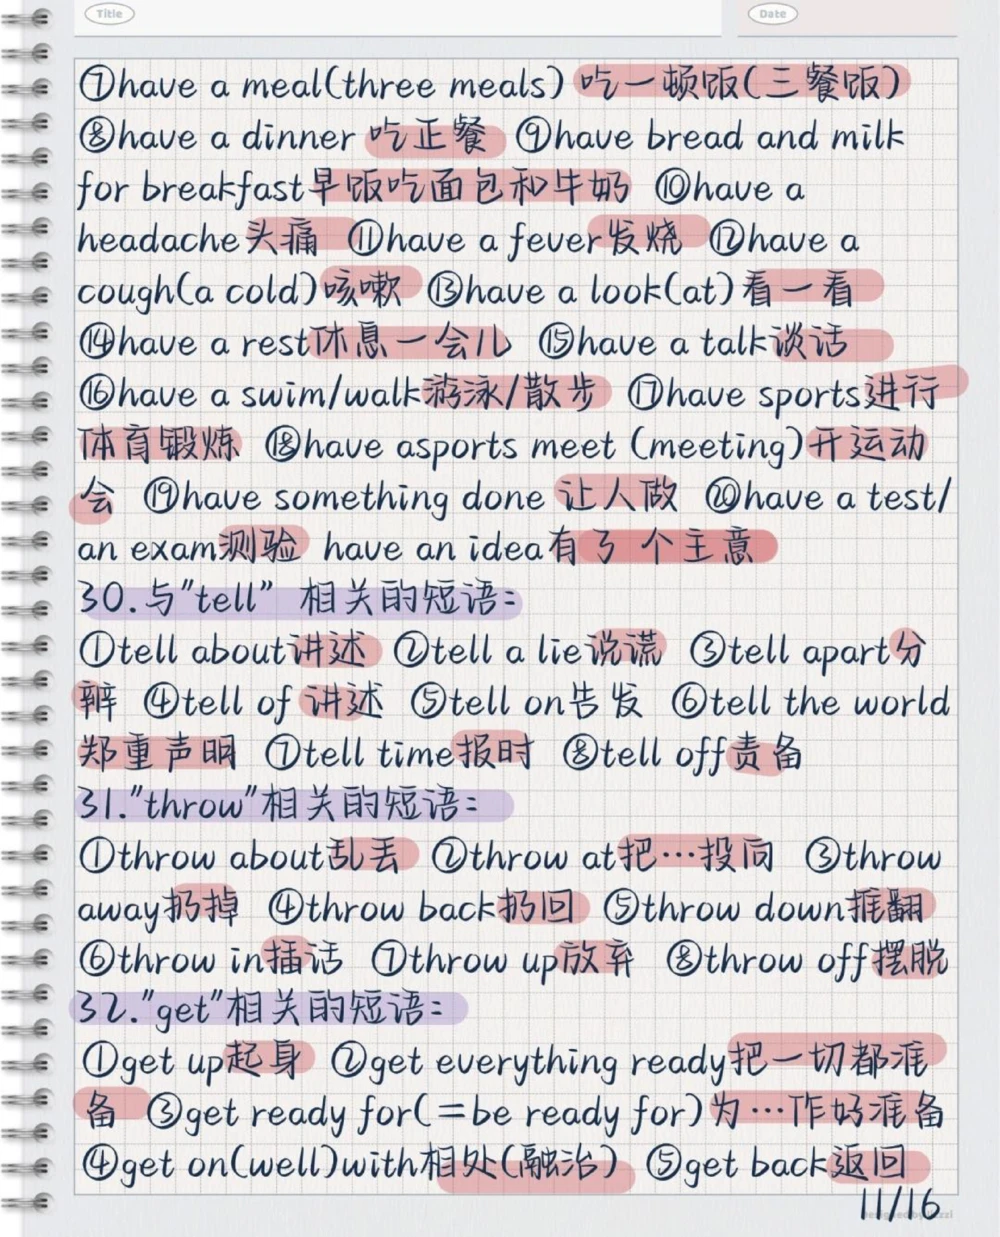 Title Date
⑦have a meal(three meals) 吃一顿饭(三餐饭)
⑧have a dinner 吃正餐 ⑨have bread and milk
for breakfast早饭吃面包和牛奶 ⑩have a
headache头痛 ⑪have a fever发烧 ⑫have a
cough(a cold)咳嗽 ⑬have a look(at)看一看
⑭have a rest休息一会儿 ⑮have a talk谈话
⑯have a swim/walk游泳/散步 ⑰have sports进行
体育锻炼 ⑱have asports meet (meeting)开运动
会 ⑲have something done 让人做 ⑳have a test/
an exam测验 have an idea有了个主意
30.与"tell" 相关的短语:
①tell about讲述 ②tell a lie说谎 ③tell apart分
辨 ④tell of 讲述 ⑤tell on告发 ⑥tell the world
郑重声明 ⑦tell time报时 ⑧tell off责备
31."throw"相关的短语:
①throw about乱丢 ②throw at把…投向 ③throw
away扔掉 ④throw back扔回 ⑤throw down推翻
⑥throw in插话 ⑦throw up放弃 ⑧throw off摆脱
32."get"相关的短语:
①get up起身 ②get everything ready把一切都准
备 ③get ready for(=be ready for)为…作好准备
④get on(well)with相处(融洽) ⑤get back返回
11/16